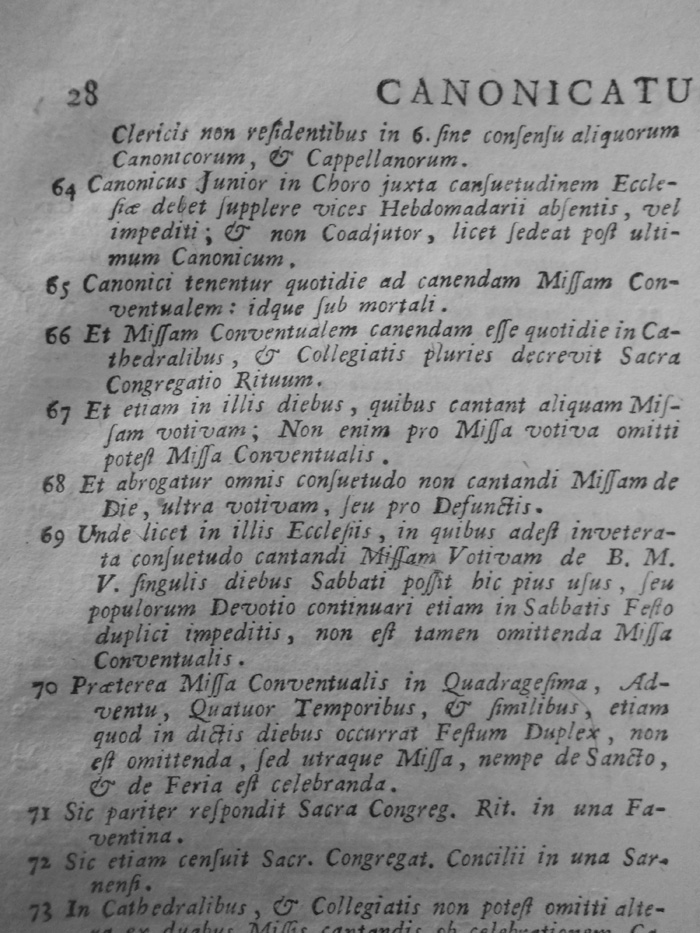 28 CANONICATU
Clericis non reſidentibus in 6. ſine conſenſu aliquorum
Canonicorum, & Cappellanorum.
64 Canonicus Junior in Choro juxta canſuetudinem Eccle-
ſiæ debet ſupplere vices Hebdomadarii abſentis, vel
impediti; & non Coadjutor, licet ſedeat poſt ulti-
mum Canonicum.
65 Canonici tenentur quotidie ad canendam Miſſam Con-
ventualem: idque ſub mortali.
66 Et Miſſam Conventualem canendam eſſe quotidie in Ca-
thedralibus, & Collegiatis pluries decrevit Sacra
Congregatio Rituum.
67 Et etiam in illis diebus, quibus cantant aliquam Miſ-
ſam votivam; Non enim pro Miſſa votiva omitti
poteſt Miſſa Conventualis.
68 Et abrogatur omnis conſuetudo non cantandi Miſſam de
Die, ultra votivam, ſeu pro Defunctis.
69 Unde licet in illis Eccleſiis, in quibus adeſt invetera-
ta conſuetudo cantandi Miſſam Votivam de B. M.
V. ſingulis diebus Sabbati poſſit hic pius uſus, ſeu
populorum Devotio continuari etiam in Sabbatis Feſto
duplici impeditis, non eſt tamen omittenda Miſſa
Conventualis.
70 Præterea Miſſa Conventualis in Quadrageſima, Ad-
ventu, Quatuor Temporibus, & ſimilibus, etiam
quod in dictis diebus occurrat Feſtum Duplex, non
eſt omittenda, ſed utraque Miſſa, nempe de Sancto,
& de Feria eſt celebranda.
71 Sic pariter reſpondit Sacra Congreg. Rit. in una Fa-
ventina.
72 Sic etiam cenſuit Sacr. Congregat. Concilii in una Sar-
nenſi.
73 In Cathedralibus, & Collegiatis non poteſt omitti alte-
ra ex duabus Miſſis cantandis ob celebrationem Ca-